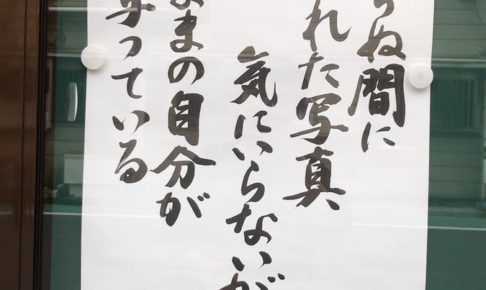 ぬ間に
れた写真
気にいらないが
まの自分が
っている